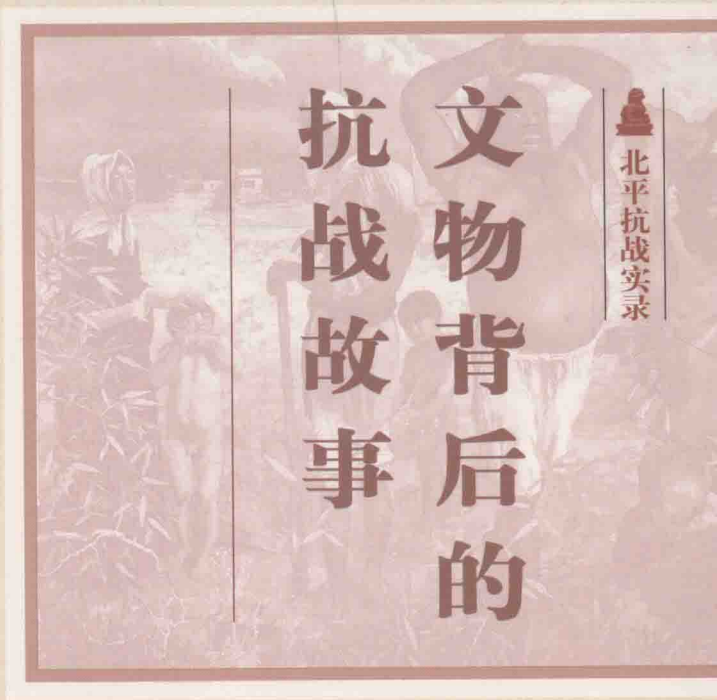 北平抗战实录
文物背后的
抗战故事